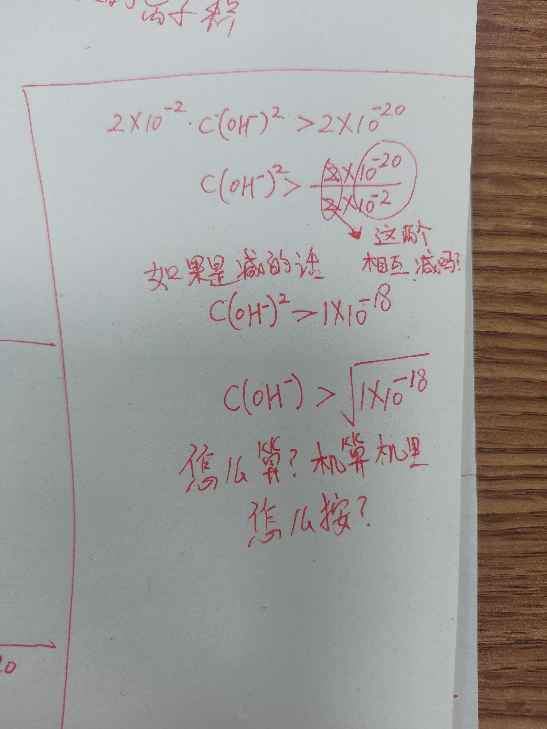 离子积
2×10⁻²·C(OH⁻)²>2×10⁻²⁰
C(OH⁻)²> 2×10⁻²⁰/2×10⁻²
这两个
如果是减的话 相互减吗?
C(OH⁻)²>1×10⁻¹⁸
C(OH⁻)>√1×10⁻¹⁸
怎么算?机算机里
怎么按?
20